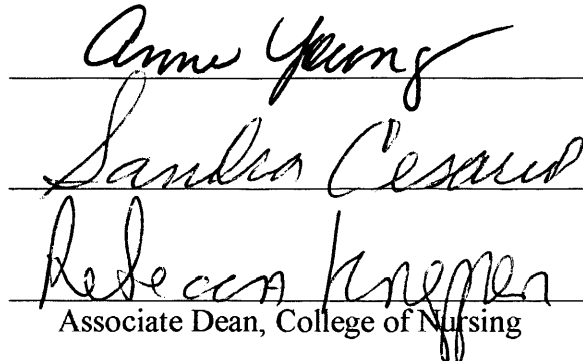 Anne Young
Sandra Cesario
Rebecca
Associate Dean, College of Nursing